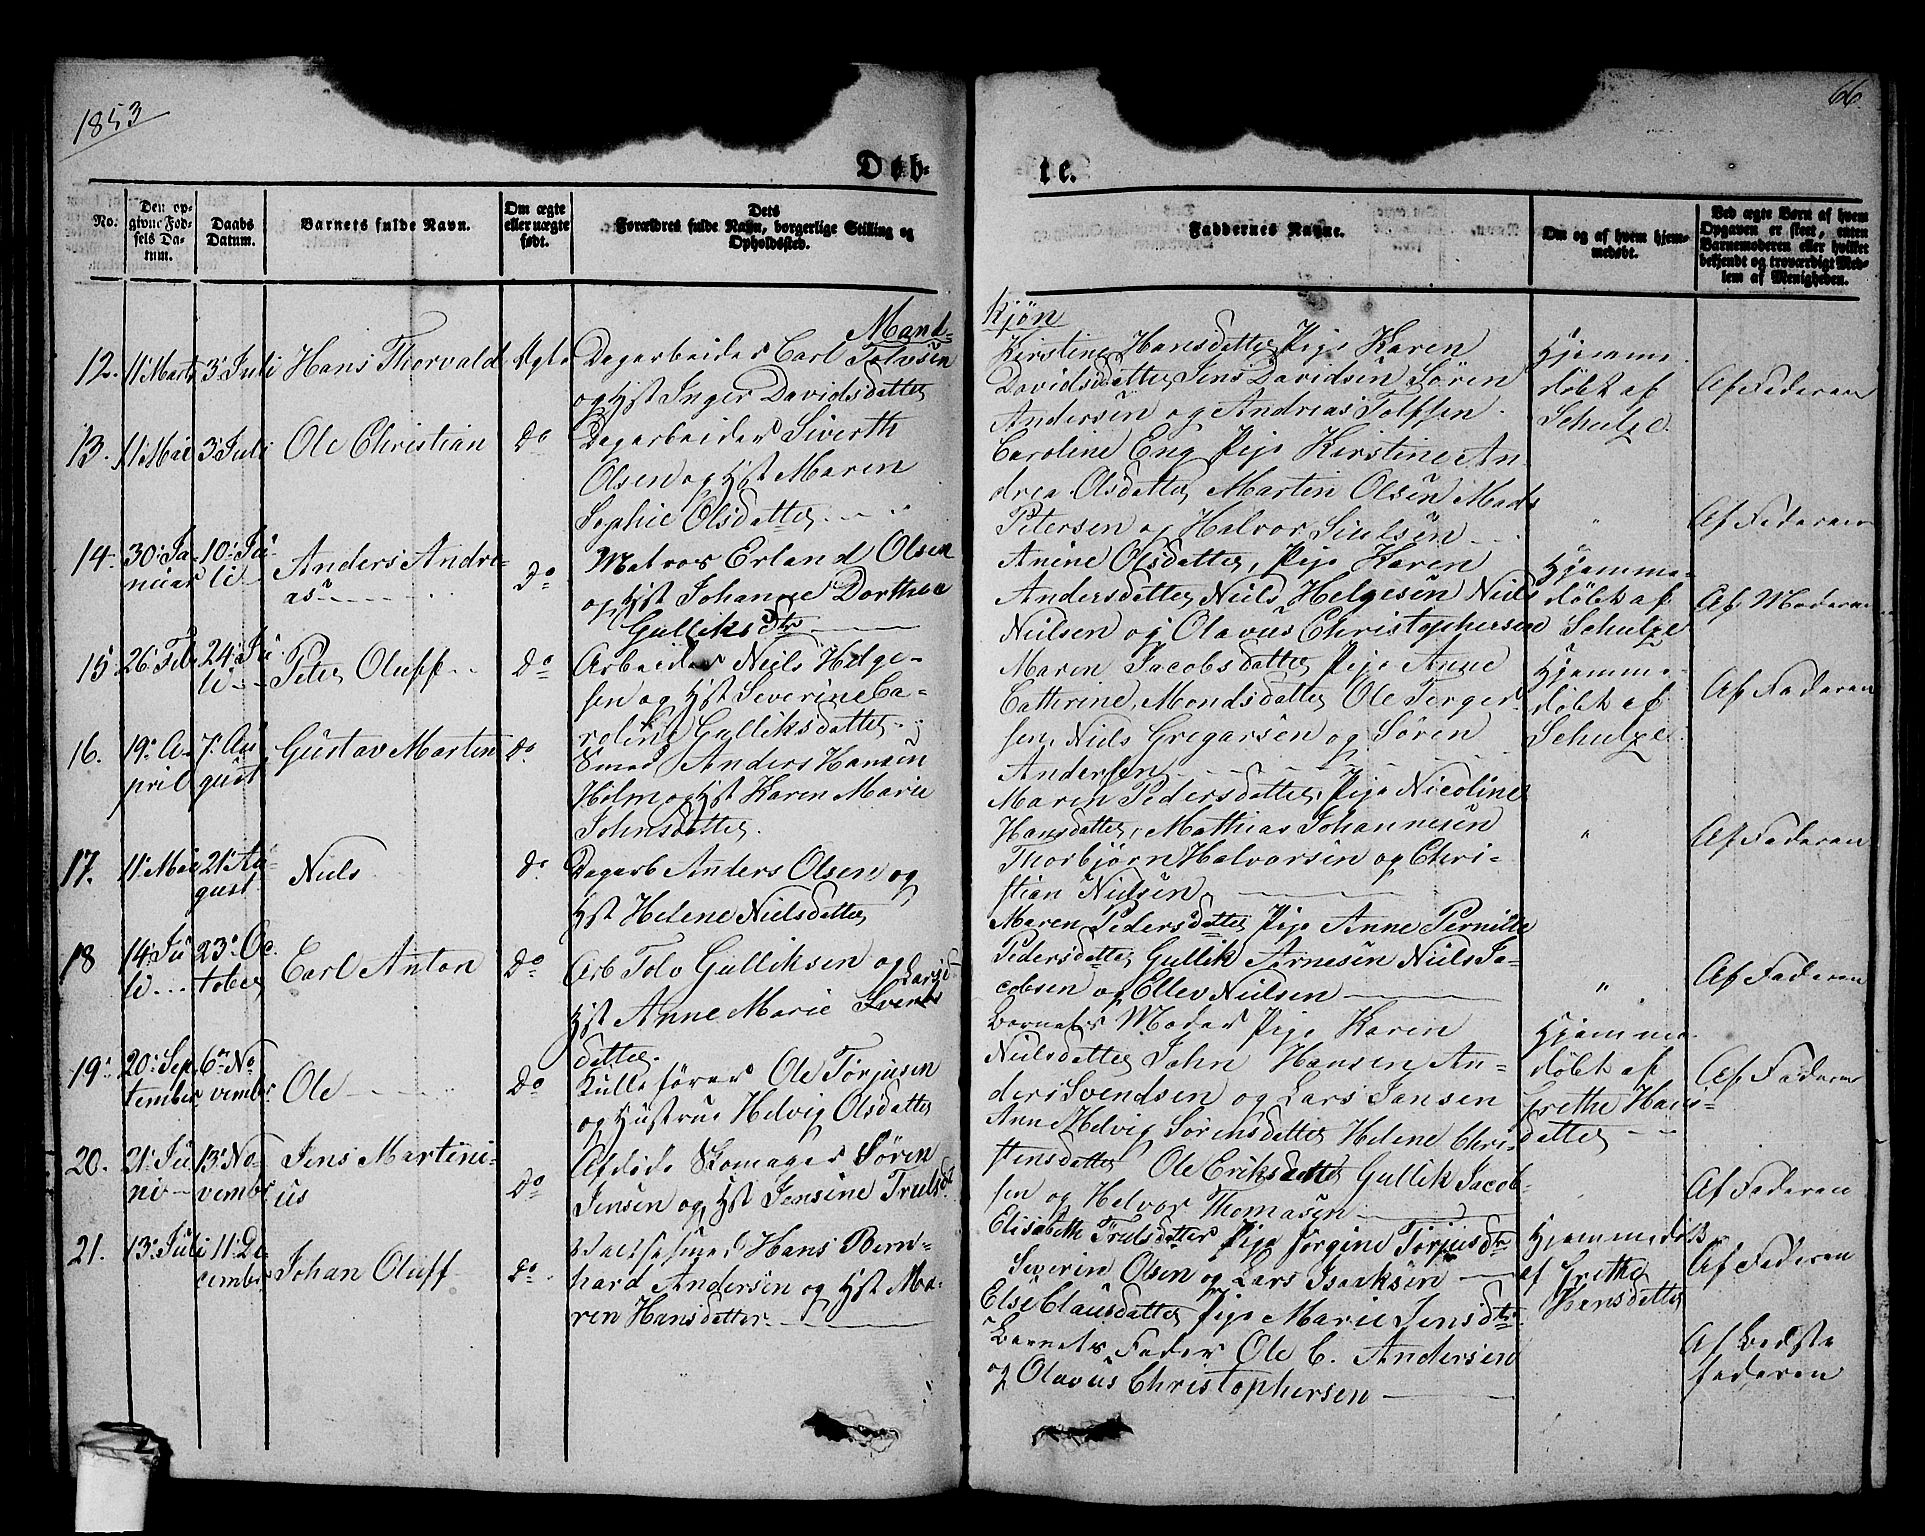 1853
66.
Døb-
te.
No.
Den op-
givne Fød-
sels Da-
tum.
Daabs
Datum.
Barnets fulde Navn.
Om ægte
eller uægte
født.
Dets
Forældres fulde Navn, borgerlige Stilling og
Opholdssted.
Faddernes Navne.
Om og af hvem hjem-
medøbt.
Ved ægte Børn af hvem
Opgaven er skeet, enten
Barnemoderen eller hvilket
bekjendt og troværdigt Med-
lem af Menigheden.
Mand-
kjøn
12. 11' Marts 3' Juli Hans Thorvald Ægte
Dagarbeider Carl Tolvsen
og Hst Inger Davidsdatter
Kirstine Hansdatter Pige Karen
Davidsdatter Jens Davidsen Søren
Andersen og Andreas Tolfsen
Hjemme-
døbt af
Schulze.
Af Faderen
13. 11' Mai 3' Juli Ole Christian Do
Dagarbeider Siverth
Olsen og Hst Maren
Sophie Olsdatter
Caroline Eng Pige Kirstine An-
drea Olsdatter Martin Olsen Mads
Petersen og Halvor
"
Af Faderen
14. 30' Ja-
nuar
10' Ju-
li
Anders Andre-
as
Do
Matros Erland Olsen
og Hst Johanne Dorthea
Gulliksdtr
Anine Olsdatter, Pige Karen
Andersdatter Niels Helgesen Niels
Nielsen og Olavus Christophersen
Hjemme-
døbt af
Schulze
Af Moderen
15 26' Feb 24' Ju-
li
Peter Oluff Do
Arbeider Niels Helge-
sen og Hst Severine Ca-
roline Gulliksdatter
Maren Jacobsdatter Pige Anne
Cathrine Mondsdatter Ole Terger-
sen, Niels Gregarsen og Søren
Andersen
Hjemme-
døbt af
Schulze.
Af Faderen
16. 19' A-
pril
7' Au-
gust
Gustav Martin Do
Smed Anders Hansen
Holm og Hst Karen Marie
Johnsdatter.
Maren Pedersdatter, Pige Nicoline
Hansdatter, Mathias Johannesen
Thorbjørn Halvorsen og Chri-
stian Nielsen
"
Af Faderen
17. 11' Mai 21' Au-
gust
Niels Do
Dagarb Anders Olsen og
Hst Helene Nielsdatter
Maren Pedersdatter Pige Anne Pernille
Pedersdatter Gullik Arnesen Niels Ja-
cobsen og Ellev Nielsen
"
Af Faderen
18 14' Ju-
li
23' Oc-
tober
Carl Anton Do
Arb Tolv Gulliksen og
Hst Anne Marie Svends
datter.
Barnets Moder Pige Karen
Nielsdatter John Hansen An-
ders Svendsen og Lars Jansen
Hjemme-
døbt af
Grethe Hans-
datter
Af Faderen
19' 20' Sep
tember
6te No
vember
Ole Do
Kullefører Ole Torjusen
og Hustrue Helvig Olsdatter
Anne Helvig Sørensdatter Helene Chri-
stensdatter Ole Eriks Gullik Jacob-
sen og Halvor Thomasen
Af Faderen
20. 21' Ju-
ni
13' No-
vembr
Jens Martini-
us
Do
Afdøde Skomager Søren
Jensen og Hst Jensine Trulsdt
Elisabeth Trulsdatter Pige Jørgine Torjusdtr
Severin Olsen og Lars Isaaksen
Hjemmedøb
af Grethe
Hansdatter
Af Faderen
21. 13' Juli 11' De-
cember
Johan Oluff Do
Hans Bern-
hard Andersen og Hst Ma-
ren Hansdatter
Else Clausdatter Pige Marie Jensdtr
Barnets Fader Ole C. Andersen
og Olavus Christophersen
Af Bedste
faderen